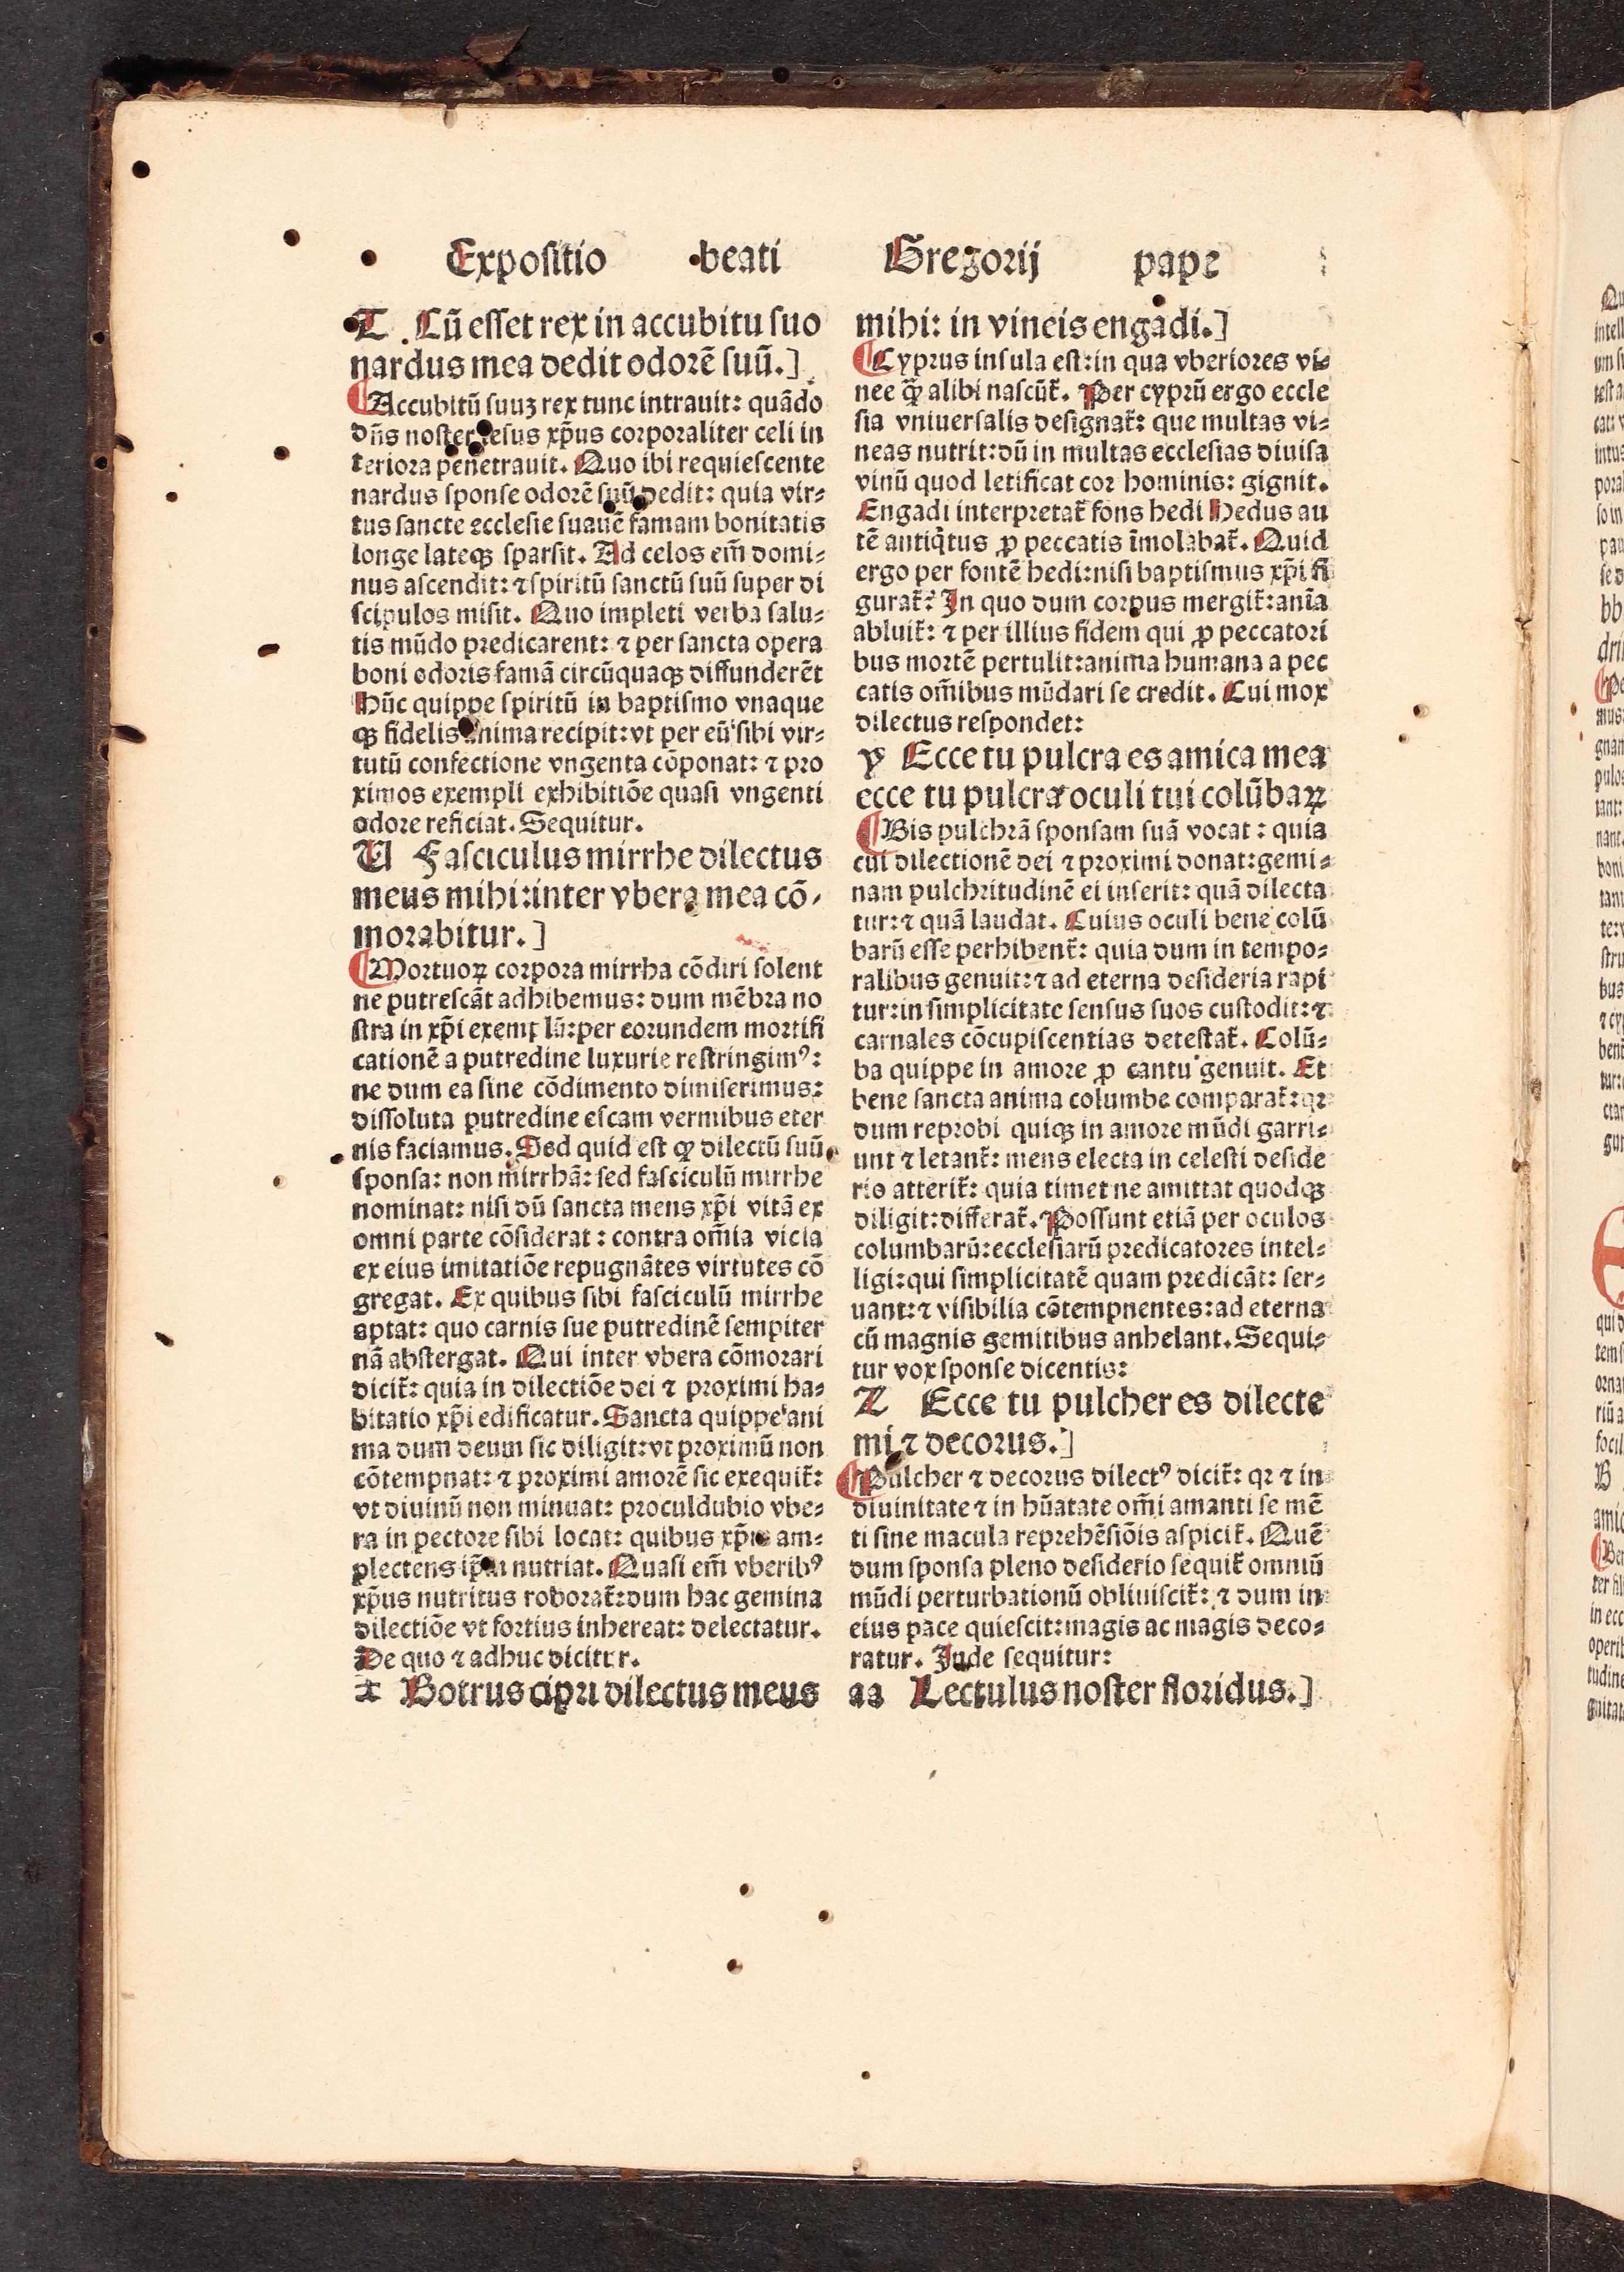 Expositio beati Gregorij pape
T Cū esset rex in accubitu suo
nardus mea dedit odorē suū.]
¶Accubitū suuȝ rex tunc intrauit: quādo
dñs noster iesus xp̄us corporaliter celi in
teriora penetrauit. Quo ibi requiescente
nardus sponse odorē suū dedit: quia vir⸗
tus sancte ecclesie suauē famam bonitatis
longe lateqꝫ sparsit. Ad celos em̄ domi⸗
nus ascendit: ⁊ spiritū sanctū suū super di
scipulos misit. Quo impleti verba salu⸗
tis mūdo predicarent: ⁊ per sancta opera
boni odoris famā circūquaqꝫ diffunderēt
Hūc quippe spiritū in baptismo vnaque
qꝫ fidelis anima recipit: vt per eū sibi vir⸗
tutū confectione vngenta cōponat: ⁊ pro
ximos exempli exhibitiōe quasi vngenti
odore reficiat. Sequitur.
U Fasciculus mirrhe dilectus
meus mihi: inter vbera mea cō⸗
morabitur.]
¶Mortuoꝝ corpora mirrha cōdiri solent
ne putrescāt adhibemus: dum mēbra no
stra in xp̄i exemplū: per eorundem mortifi
cationē a putredine luxurie restringimꝰ:
ne dum ea sine cōdimento dimiserimus:
dissoluta putredine escam vermibus eter
nis faciamus. Sed quid est ꝙ dilectū suū
sponsa: non mirrhā: sed fasciculū mirrhe
nominat: nisi dū sancta mens xp̄i vitā ex
omni parte cōsiderat: contra om̄ia vicia
ex eius imitatiōe repugnātes virtutes cō
gregat. Ex quibus sibi fasciculū mirrhe
aptat: quo carnis sue putredinē sempiter
nā abstergat. Qui inter vbera cōmorari
dicit̄: quia in dilectiōe dei ⁊ proximi ha⸗
bitatio xp̄i edificatur. Sancta quippe ani
ma dum deum sic diligit: vt proximū non
cōtempnat: ⁊ proximi amorē sic exequit̄:
vt diuinū non minuat: proculdubio vbe⸗
ra in pectore sibi locat: quibus xp̄us am⸗
plectens ip̄am nutriat. Quasi em̄ vberibꝰ
xp̄us nutritus roborat̄: dum hac gemina
dilectiōe vt fortius inhereat: delectatur.
De quo ⁊ adhuc dicitur.
x Botrus cipri dilectus meus
mihi: in vineis engadi.]
¶Cyprus insula est: in qua vberiores vi⸗
nee ꝙ̄ alibi nascūt̄. Per cyprū ergo eccle
sia vniuersalis designat̄: que multas vi⸗
neas nutrit: dū in multas ecclesias diuisa
vinū quod letificat cor hominis: gignit.
Engadi interpretat̄ fons hedi Hedus au
tē antiq̇tus ꝓ peccatis īmolabat̄. Quid
ergo per fontē hedi: nisi baptismus xp̄i fi
gurat̄: In quo dum corpus mergit̄: anīa
abluit̄: ⁊ per illius fidem qui ꝓ peccatori
bus mortē pertulit: anima humana a pec
catis om̄ibus mūdari se credit. Cui mox
dilectus respondet:
y Ecce tu pulcra es amica mea
ecce tu pulcra oculi tui colūbaꝝ
¶Bis pulchrā sponsam suā vocat: quia
cui dilectionē dei ⁊ proximi donat: gemi⸗
nam pulchritudinē ei inserit: quā dilecta
tur: ⁊ quā laudat. Cuius oculi bene colū
barū esse perhibent̄: quia dum in tempo⸗
ralibus genuit: ⁊ ad eterna desideria rapi
tur: in simplicitate sensus suos custodit: ⁊
carnales cōcupiscentias detestat̄. Colū⸗
ba quippe in amore ꝓ cantu genuit. Et
bene sancta anima columbe comparat̄: qꝛ
dum reprobi quiqꝫ in amore mūdi garri⸗
unt ⁊ letant̄: mens electa in celesti deside
rio atterit̄: quia timet ne amittat quodqꝫ
diligit: differat̄. Possunt etiā per oculos
columbarū: ecclesiarū predicatores intel⸗
ligi: qui simplicitatē quam predicāt: ser⸗
uant: ⁊ visibilia cōtempnentes: ad eterna
cū magnis gemitibus anhelant. Sequi⸗
tur vox sponse dicentis:
Z Ecce tu pulcher es dilecte
mi ⁊ decorus.]
¶Pulcher ⁊ decorus dilectꝰ dicit̄: qꝛ ⁊ in
diuinitate ⁊ in hūatate om̄i amanti se mē
ti sine macula reprehēsiōis aspicit̄. Quē
dum sponsa pleno desiderio sequit̄ omniū
mūdi perturbationū obliuiscit̄: ⁊ dum in
eius pace quiescit: magis ac magis deco⸗
ratur. Inde sequitur:
aa Lectulus noster floridus.]